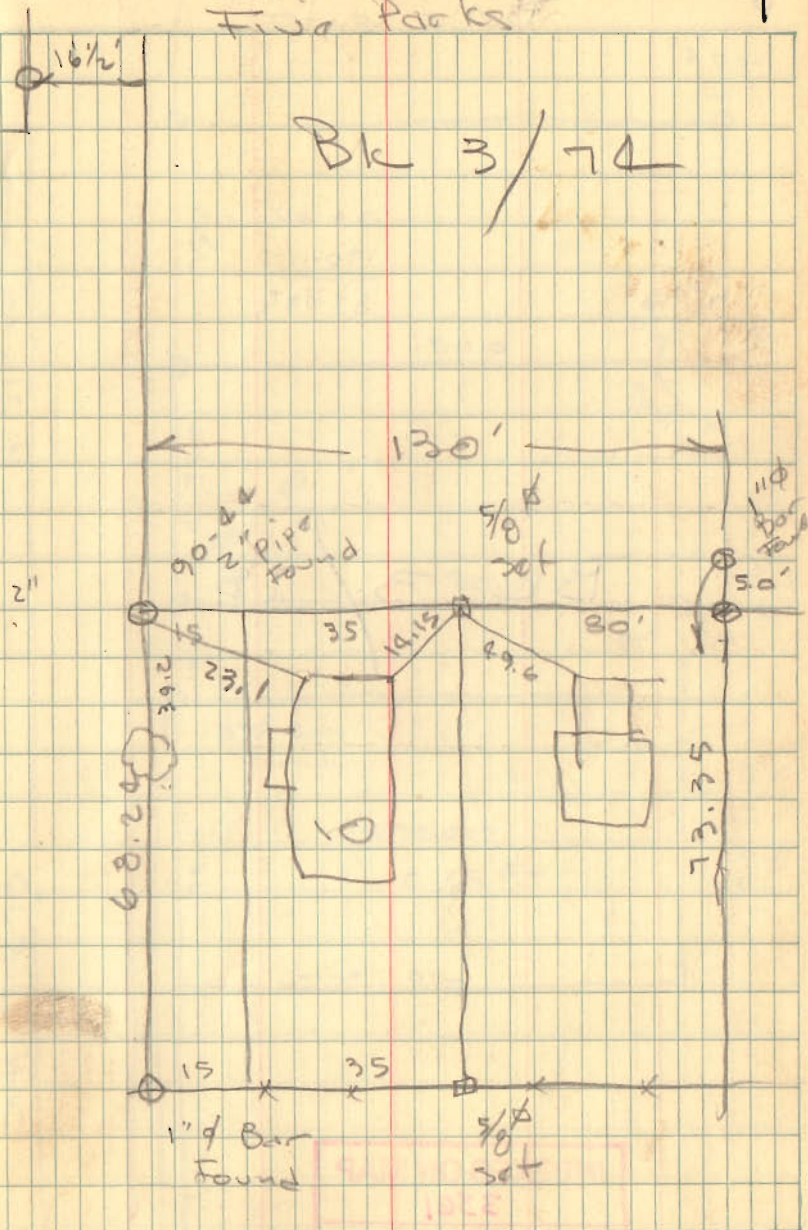 Five Parks
16 1/2'
Bk 3/74
130'
90-44
2" pipe
Found
5/8 ⌀
set
1" ⌀
Bar
Found
5.0'
2"
15
35
14.15
49.6
80'
23.1
39.2
68.24
73.35
10
15
35
1" ⌀ Bar
Found
5/8 ⌀
set